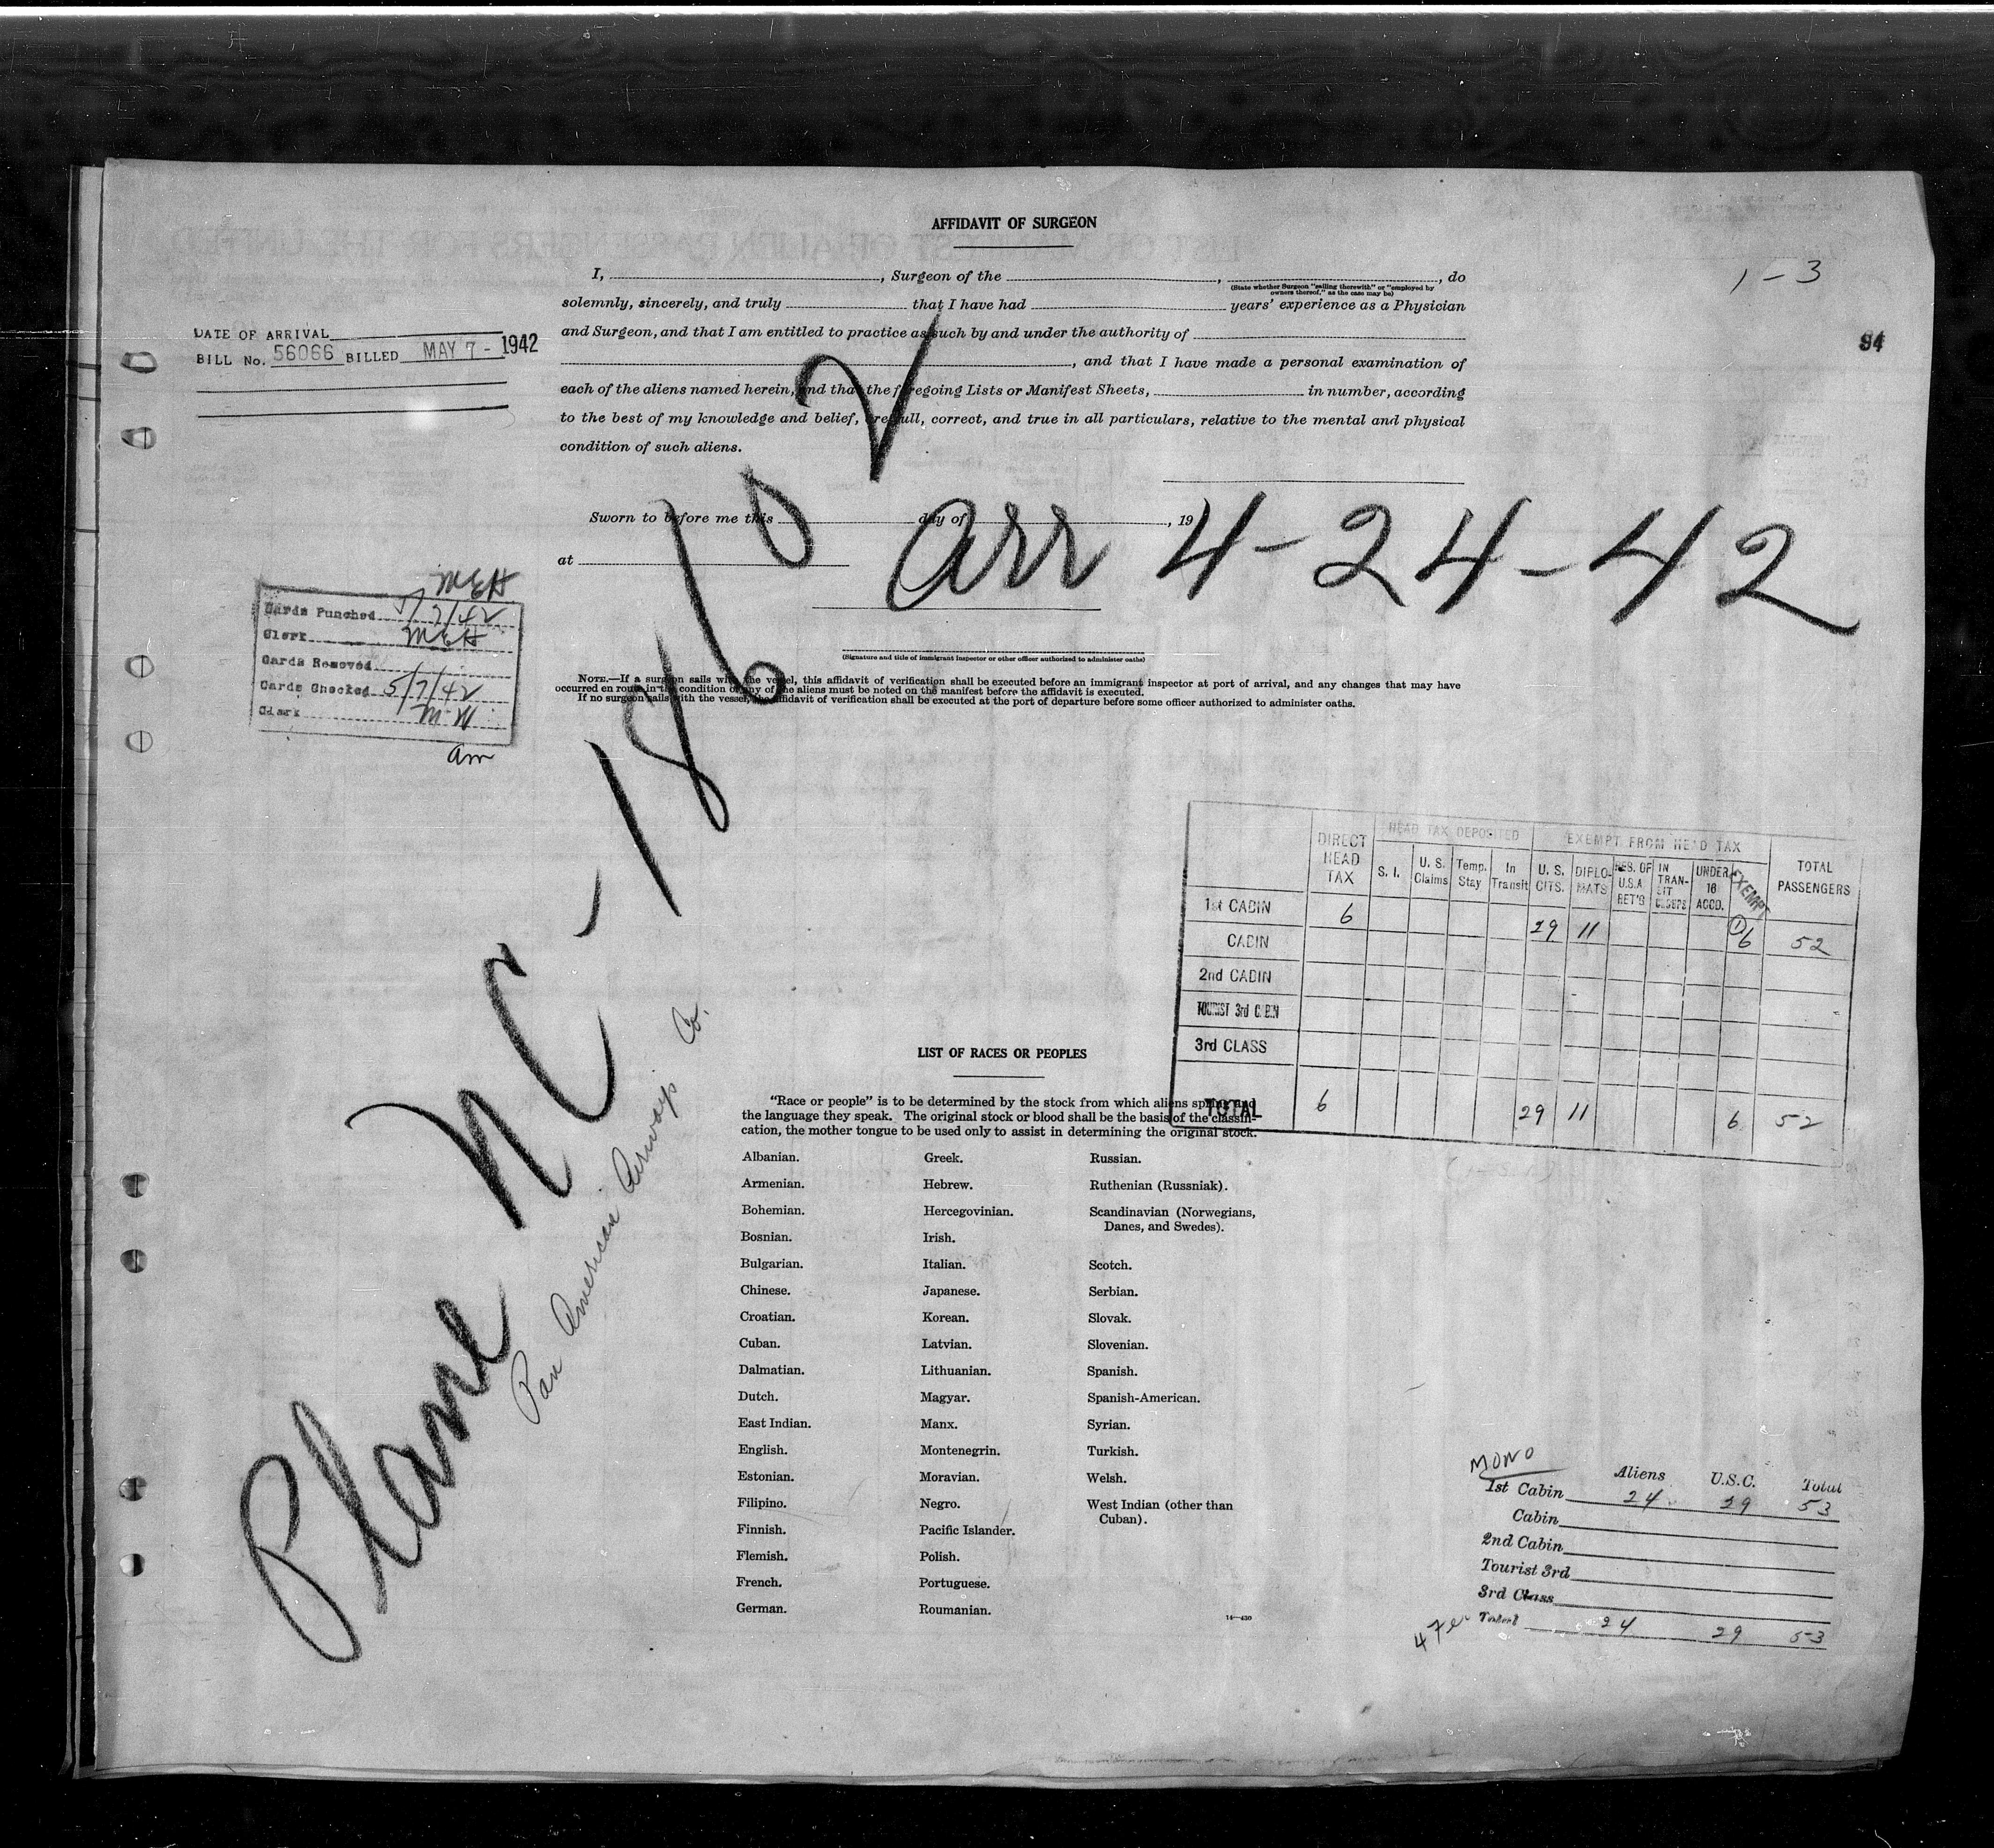 AFFIDAVIT OF SURGEON
I, , Surgeon of the , , do
(State whether Surgeon "sailing therewith" or "employed by
owners thereof," as the case may be)
solemnly, sincerely, and truly that I have had years' experience as a Physician
and Surgeon, and that I am entitled to practice as such by and under the authority of
, and that I have made a personal examination of
each of the aliens named herein, and that the foregoing Lists or Manifest Sheets, in number, according
to the best of my knowledge and belief, are full, correct, and true in all particulars, relative to the mental and physical
condition of such aliens.
1-3
94
DATE OF ARRIVAL
BILL No. 56066 BILLED MAY 7 - 1942
Sworn to before me this day of , 19
at
arr 4-24-42
(Signature and title of immigrant inspector or other officer authorized to administer oaths)
NOTE.—If a surgeon sails with the vessel, this affidavit of verification shall be executed before an immigrant inspector at port of arrival, and any changes that may have
occurred en route in the condition of any of the aliens must be noted on the manifest before the affidavit is executed.
If no surgeon sails with the vessel, the affidavit of verification shall be executed at the port of departure before some officer authorized to administer oaths.
MEH
Cards Punched 5/7/42
Clerk MEH
Cards Removed
Cards Checked 5/7/42
Clerk M W
am
Plane NC-18602
Pan American Airways Co.
DIRECT HEAD TAX
HEAD TAX DEPOSITED
EXEMPT FROM HEAD TAX
TOTAL PASSENGERS
S. I.
U. S. Claims
Temp. Stay
In Transit
U. S. CITS.
DIPLO-MATS
RES. OF U.S.A RET'G
IN TRAN-SIT
UNDER 16 ACCD.
EXEMPT
1st CABIN 6 29 11 (1) 6 52
CABIN
2nd CABIN
TOURIST 3rd CABIN
3rd CLASS
TOTAL 6 29 11 6 52
LIST OF RACES OR PEOPLES
"Race or people" is to be determined by the stock from which aliens spring and
the language they speak. The original stock or blood shall be the basis of the classifi-
cation, the mother tongue to be used only to assist in determining the original stock.
Albanian.
Armenian.
Bohemian.
Bosnian.
Bulgarian.
Chinese.
Croatian.
Cuban.
Dalmatian.
Dutch.
East Indian.
English.
Estonian.
Filipino.
Finnish.
Flemish.
French.
German.
Greek.
Hebrew.
Hercegovinian.
Irish.
Italian.
Japanese.
Korean.
Latvian.
Lithuanian.
Magyar.
Manx.
Montenegrin.
Moravian.
Negro.
Pacific Islander.
Polish.
Portuguese.
Roumanian.
Russian.
Ruthenian (Russniak).
Scandinavian (Norwegians,
Danes, and Swedes).
Scotch.
Serbian.
Slovak.
Slovenian.
Spanish.
Spanish-American.
Syrian.
Turkish.
Welsh.
West Indian (other than
Cuban).
14—430
MONO
Aliens U.S.C. Total
1st Cabin 24 29 53
Cabin
2nd Cabin
Tourist 3rd
3rd Class
Total 24 29 53